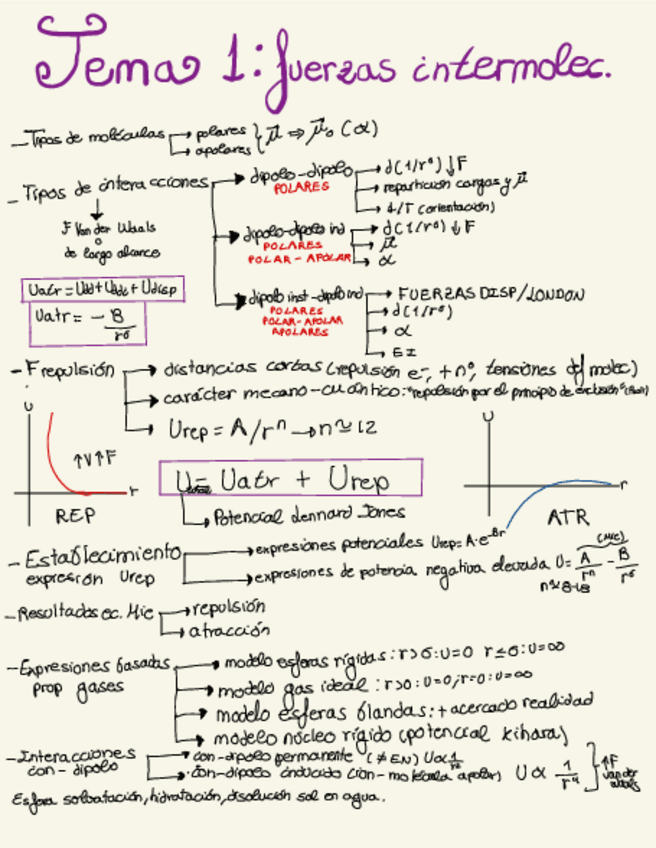 Tema 1: fuerzas intermolec.
- Tipos de moléculas → polares } μ⃗ ⇒ μ⃗₀ (α)
→ apolares
- Tipos de interacciones → dipolo-dipolo → d(1/r⁶) ↓F
POLARES → repartición cargas y μ⃗
→ 1/T (orientación)
↓
F Van der Waals
o
de largo alcance
→ dipolo-dipolo ind → d(1/r⁶) ↓F
POLARES → μ⃗
POLAR-APOLAR → α
Uatr = Udd + Uddi + Udisp
Uatr = - B/r⁶
→ dipolo inst-dipolo ind → FUERZAS DISP/LONDON
POLARES → d(1/r⁶)
POLAR-APOLAR → α
APOLARES → EI
- F repulsión → distancias cortas (repulsión e⁻, + nº, tensiones molec)
→ carácter mecano-cuántico: "repulsión por el principio de exclusión"
→ Urep = A/rⁿ → n≃12
U
↑V↑F
r
REP
U = Uatr + Urep
→ Potencial Lennard Jones
U
r
ATR
- Establecimiento expresión Urep → expresiones potenciales Urep = A·e^-Br
→ expresiones de potencia negativa elevada U = A/rⁿ - B/r⁶ (Mie)
- Resultados ec. Mie → repulsión
→ atracción
- Expresiones basadas prop gases → modelo esferas rígidas: r>σ: U=0 r≤σ: U=∞
→ modelo gas ideal: r>0: U=0; r=0: U=∞
→ modelo esferas blandas: + acercado realidad
→ modelo núcleo rígido (potencial Kihara)
- Interacciones ion-dipolo → ion-dipolo permanente (≠EN) U∝1/r²
→ ion-dipolo inducido (ion-molécula apolar) U∝ 1/r⁴ } ↑F van der waals
Esfera solvatación, hidratación, disolución sal en agua.